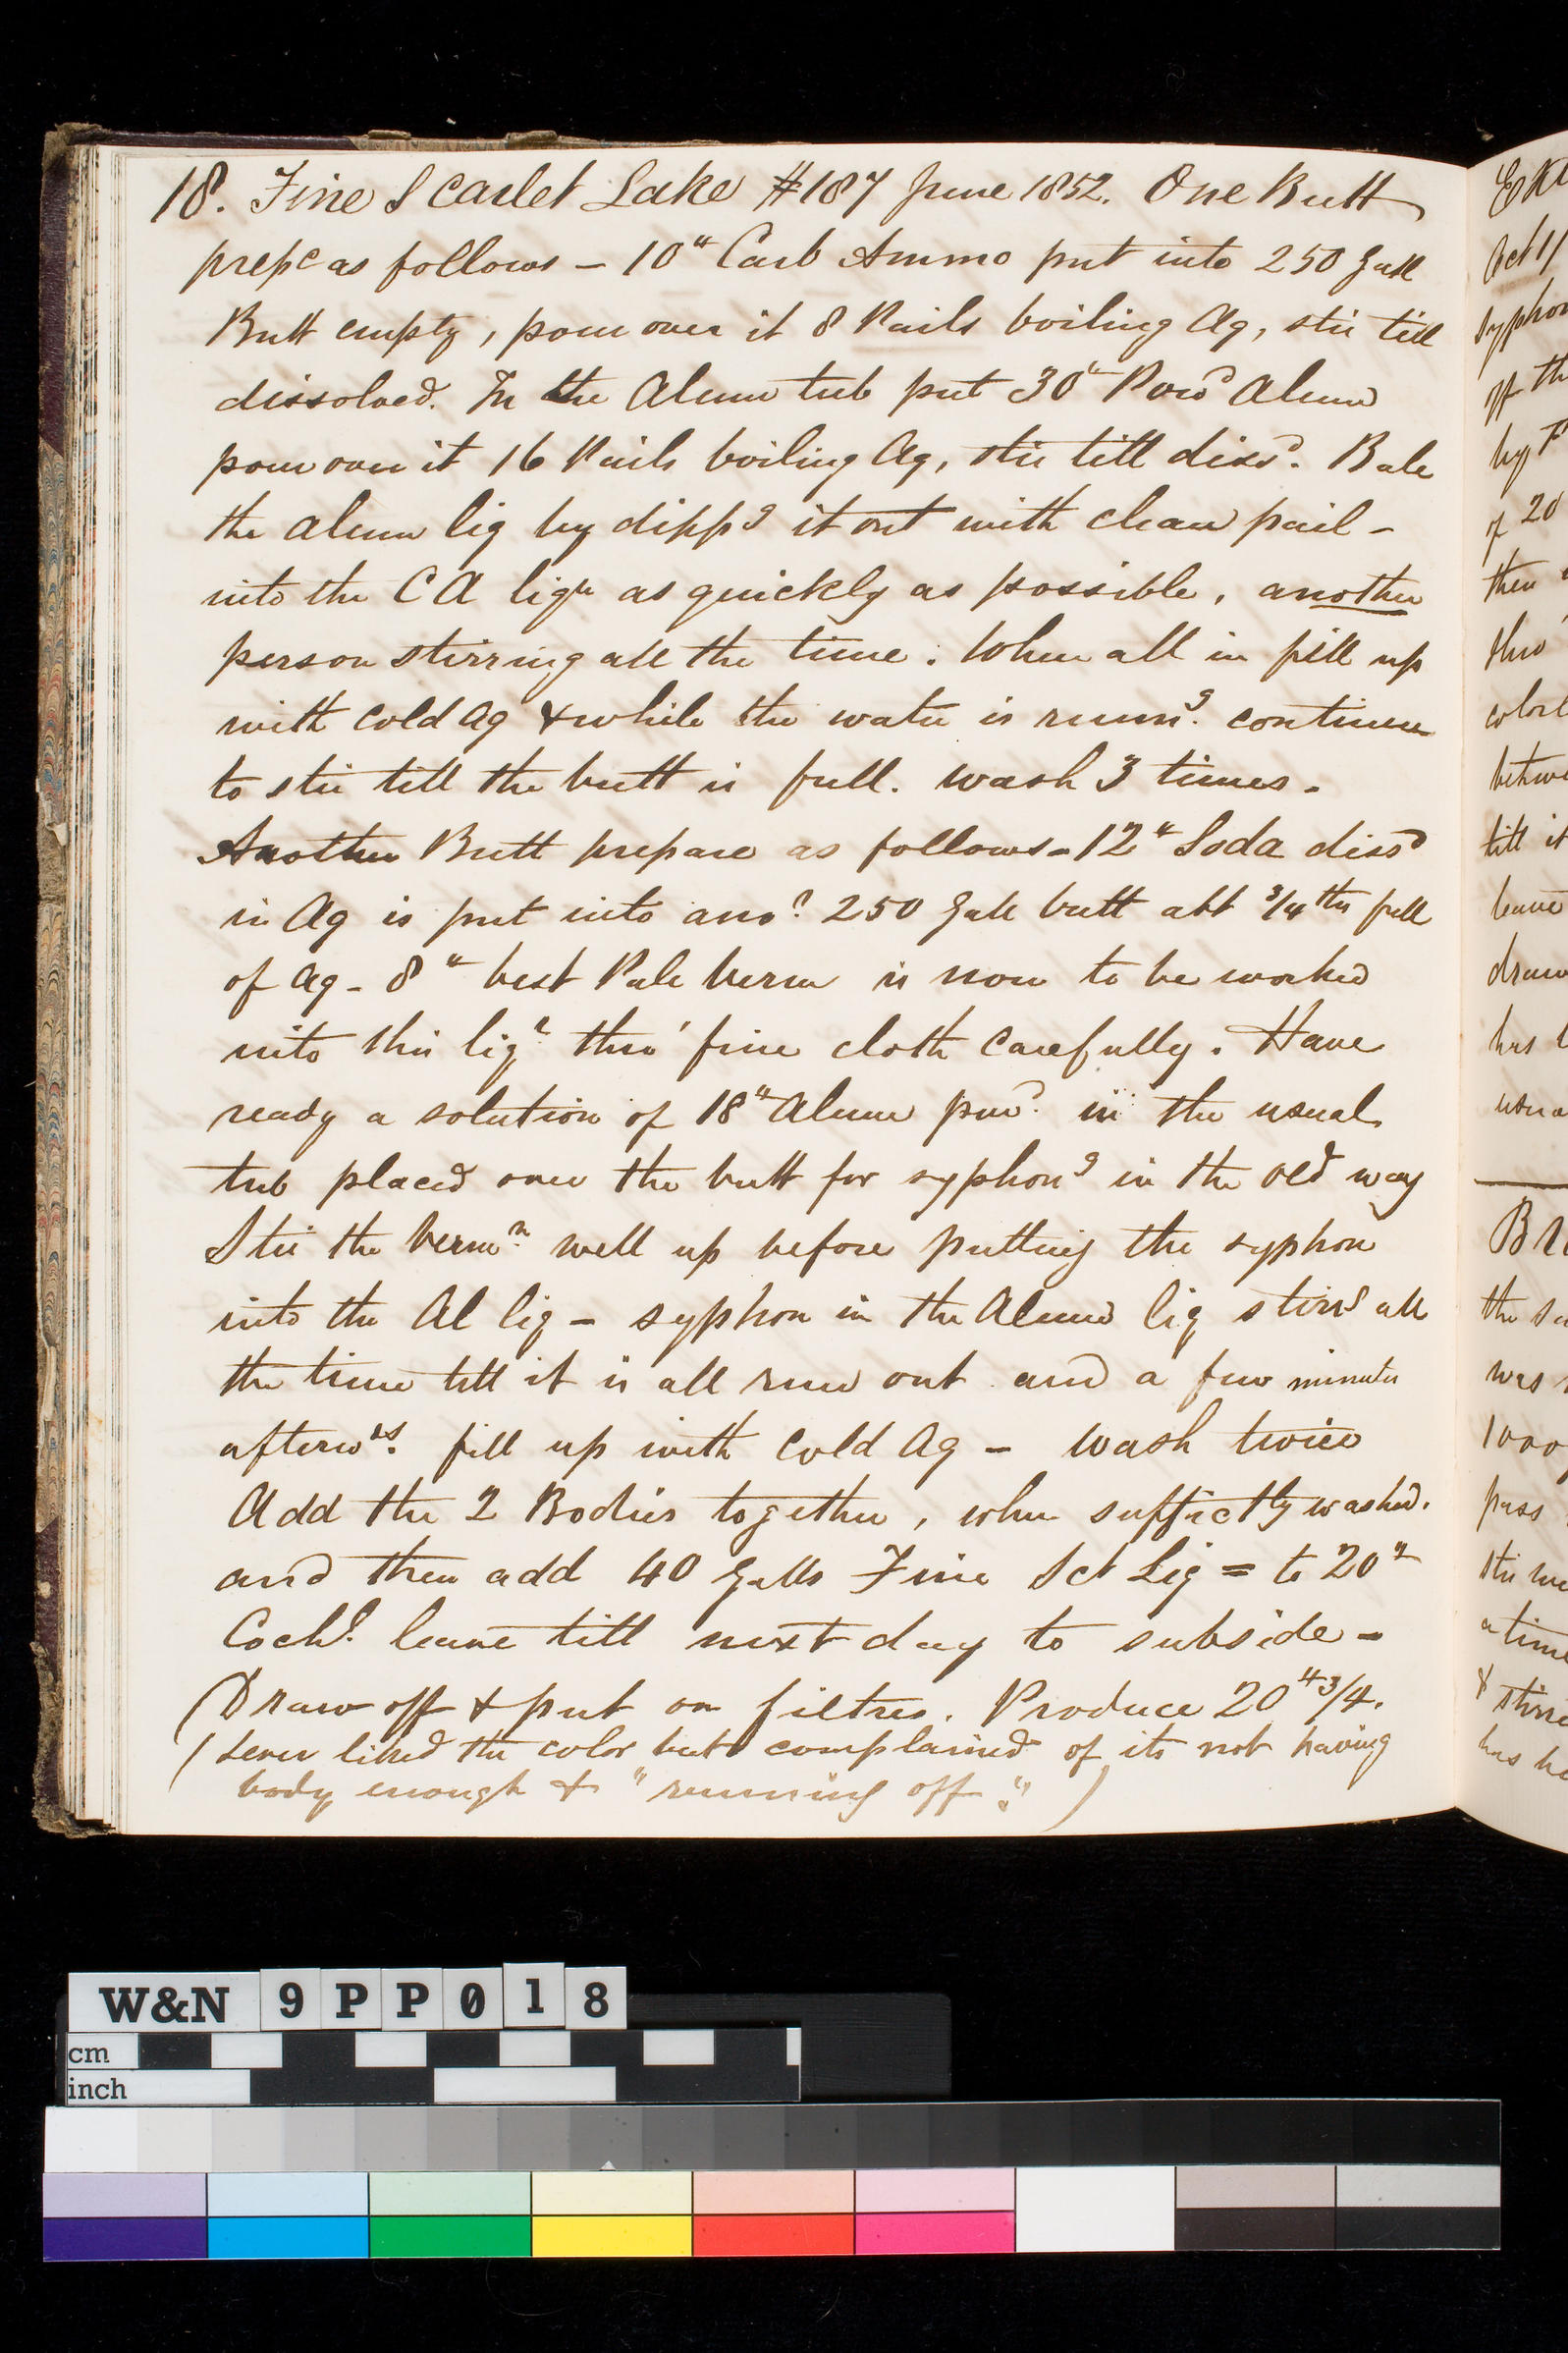 18. Fine Scarlet Lake #187 June 1852. One Butt
prepd as follows – 10" Carb Ammo put into 250 Gall
Butt empty, pour over it 8 Pails boiling Aq, stir till
dissolved. In the Alum tub put 30" Powd Alum
pour over it 16 Pails boiling Aq, stir till dissd. Bale
the alum liq by dippg it out with clean pail –
into the C A liqr as quickly as possible, another
person stirring all the time. When all in fill up
with cold Aq & while the water is runng. continue
to stir till the butt is full. wash 3 times.
Another Butt prepare as follows – 12" Soda dissd
in Aq is put into anor 250 Gall butt abt 3/4ths full
of Aq – 8" best Pale Verm is now to be worked
into this liqr thro' fine cloth carefully. Have
ready a solution of 18" Alum powd. in the usual
tub placed over the butt for syphong in the old way
Stir the Vermn well up before putting the syphon
into the Al liq – syphon in the Alum liq stirrg all
the time till it is all run out and a few minutes
afterwds. fill up with cold Aq – wash twice
Add the 2 Bodies together, when suffictly washed.
and then add 40 Galls Fine Sct Liq = to 20"
Cochl. leave till next day to subside –
(Draw off & put on filtres. Produce 20" 3/4.
( liked the color but complained of its not having
body enough & "running off." )
Oct 1/
syphon
off th
by
of 20
then
thro'
till it
leave
has
the
was
1000
pass
a time
& stirre
has
W&N 9PP018
cm
inch